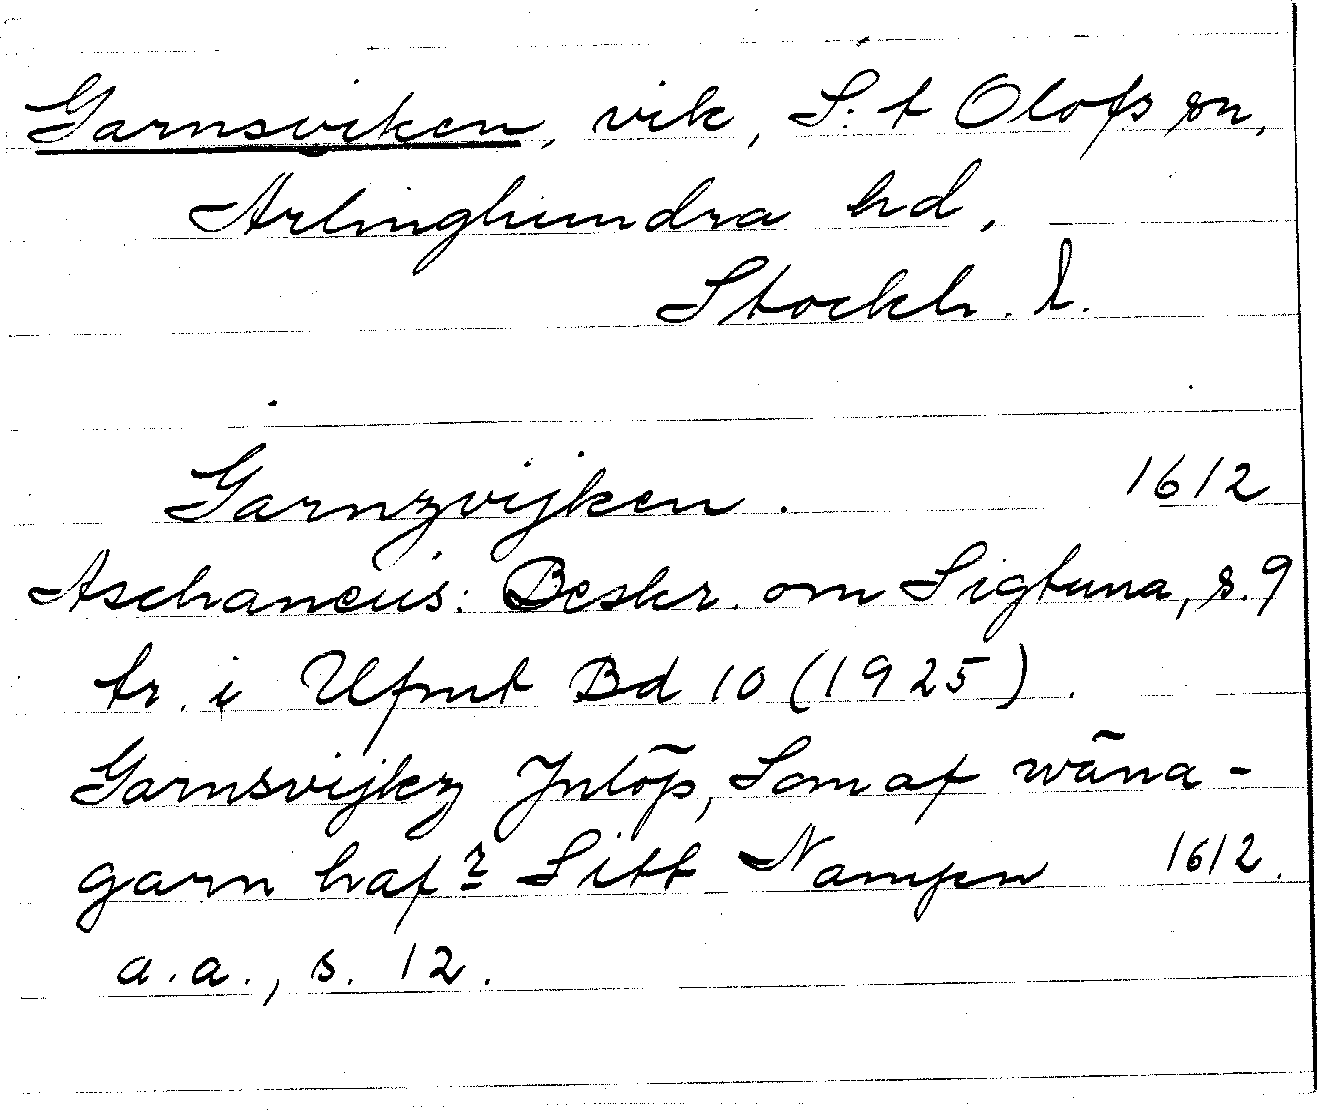 Garnsviken, vik, S:t Olofs sn,
Ärlinghundra hd,
Stockh. l.
Garnzvijken. 1612
Aschaneus: Beskr. om Sigtuna, s. 9
tr. i Ufmt Bd 10 (1925).
Garnsvijkz Jnlõp, Som af wäna-
garn haf? Sitt Nampn 1612.
a.a., s. 12.